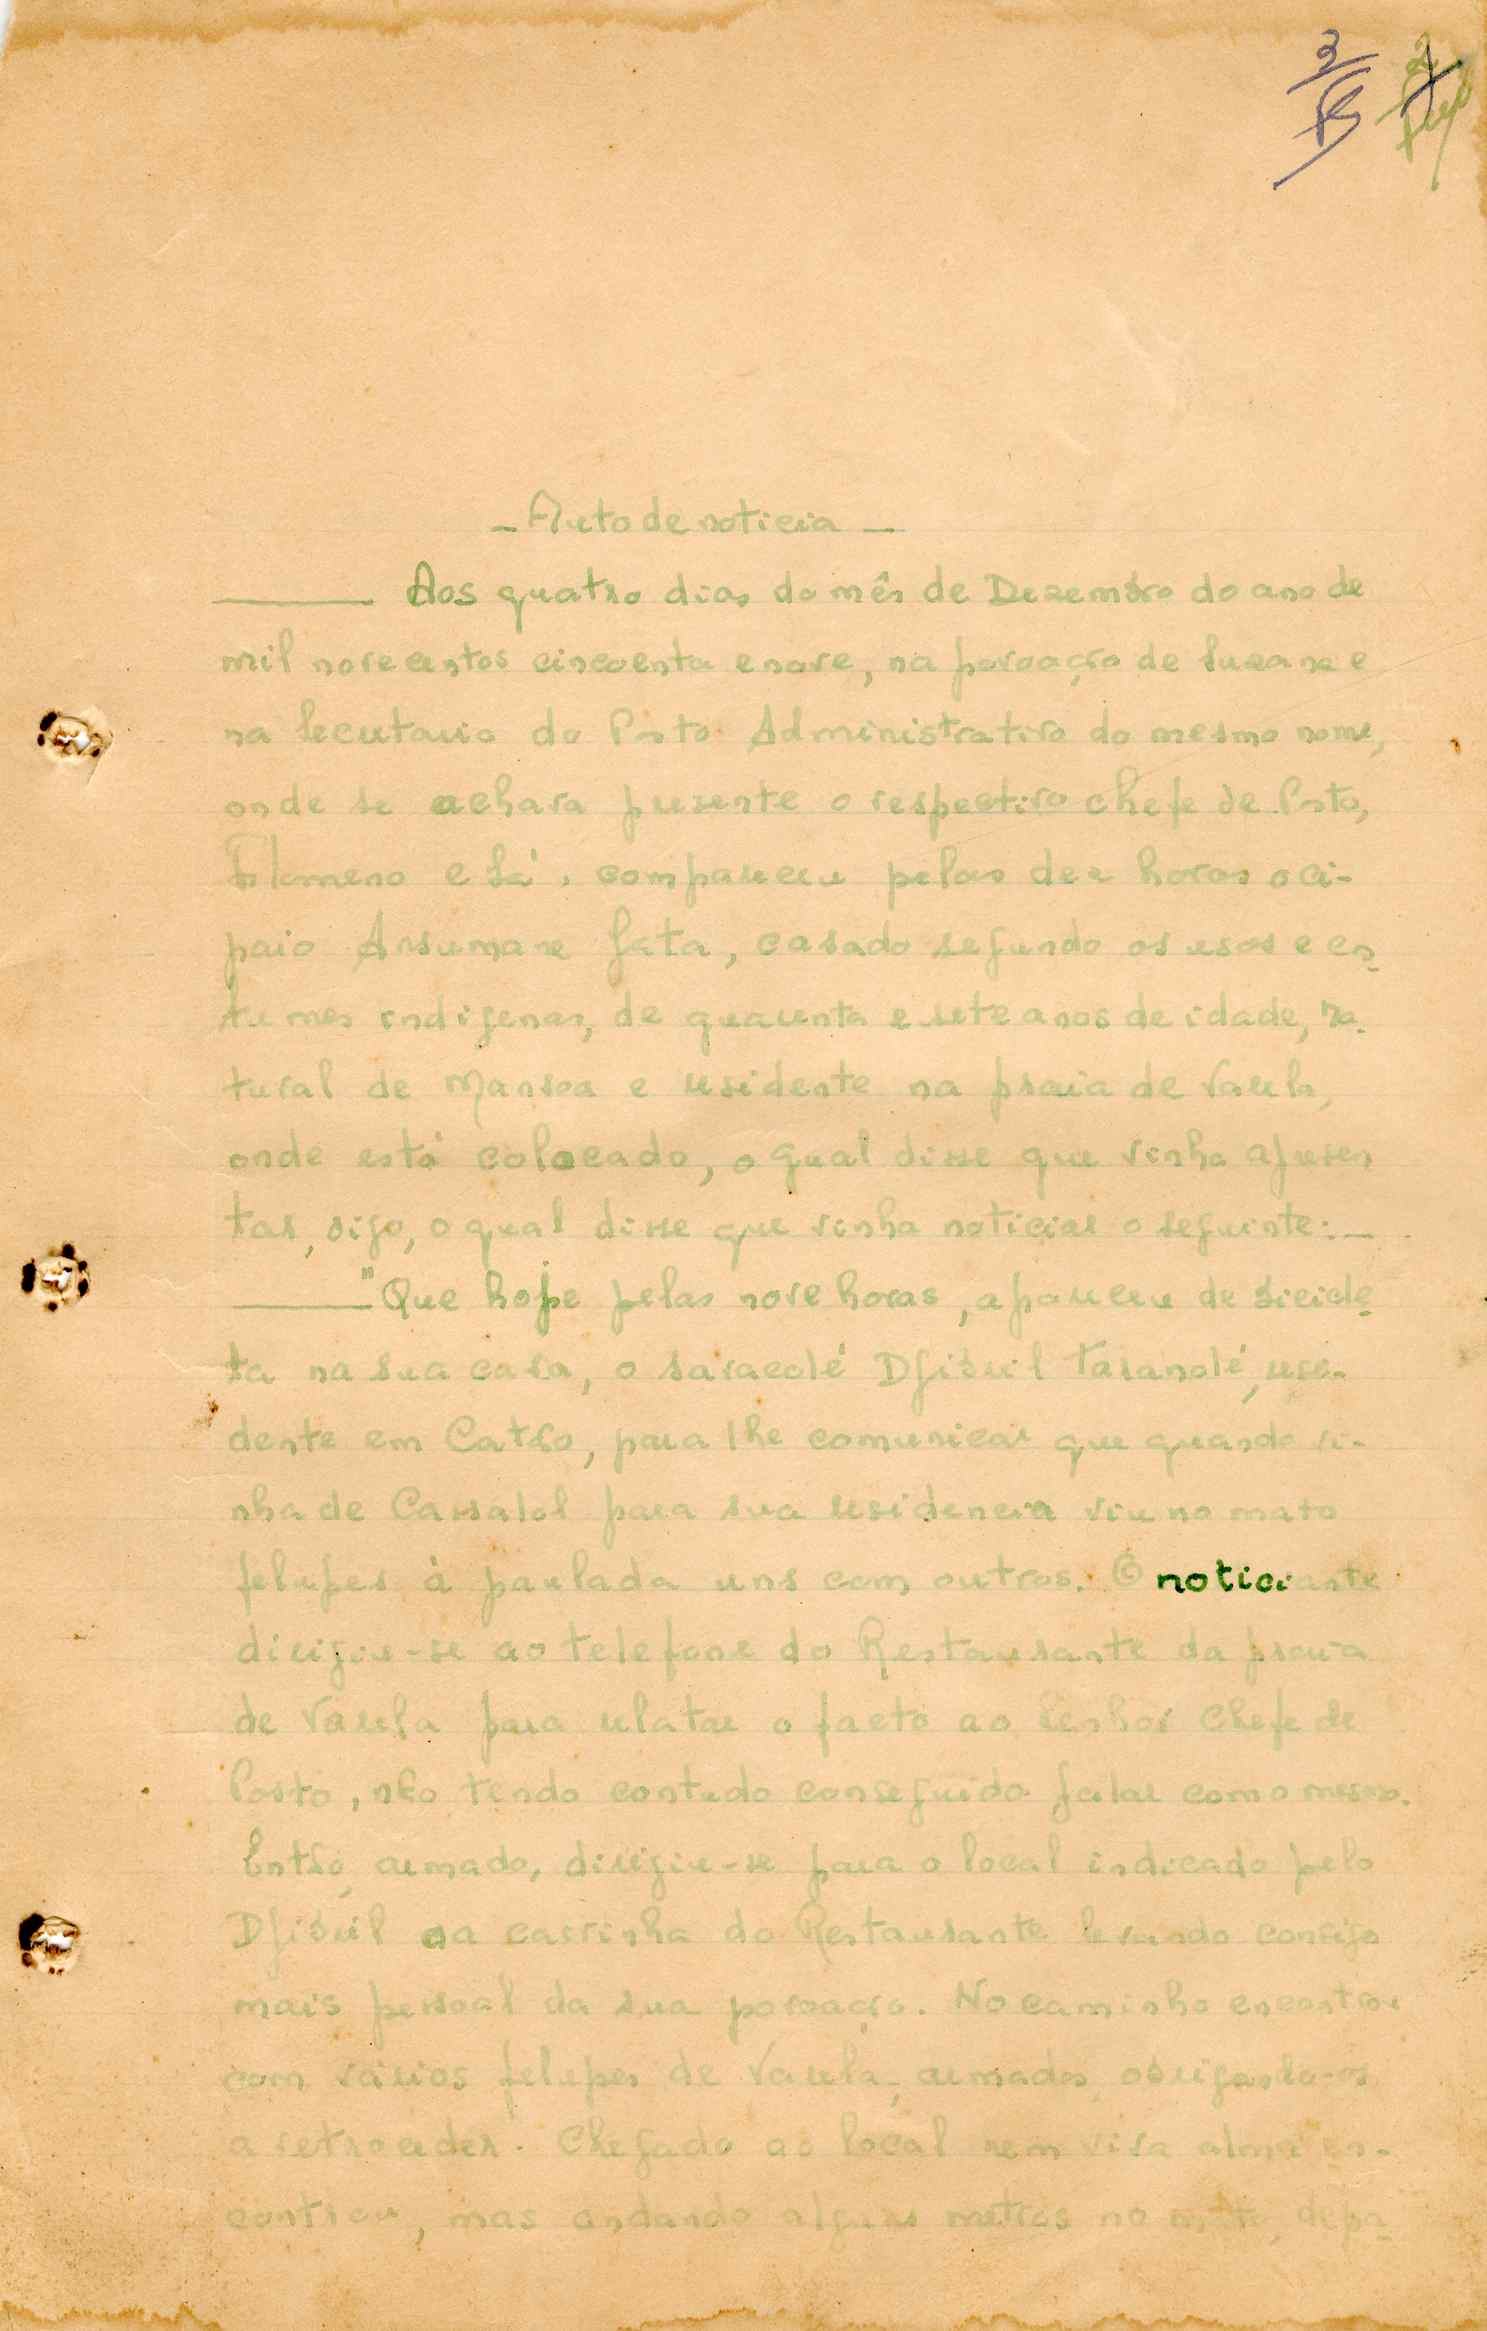 2
2
- Auto de noticia -
Aos quatro dias do mês de Dezembro do ano de
mil novecentos cincoenta e nove, na povoação de Suzana e
na Secretaria do Posto Administrativo do mesmo nome,
onde se achava presente o respectivo chefe de Posto,
Filomeno e Sá, compareceu pelas dez horas o ci-
paio Ansumane Sata, casado segundo os usos e cos-
tumes indigenas, de quarenta e sete anos de idade, na-
tural de Mansoa e residente na praia de Varela,
onde está colocado, o qual disse que vinha apresen
tar, digo, o qual disse que vinha noticiar o seguinte:-
"Que hoje pelas nove horas, apareceu de bicicle-
ta na sua casa, o saracolé Djibril Taranolé, resi-
dente em Catão, para lhe comunicar que quando vi-
nha de Cassalol para sua residencia viu no mato
felupes à paulada uns com outros. O noticiante
dirigiu-se ao telefone do Restaurante da praia
de Varela para relatar o facto ao Senhor Chefe de
Posto, não tendo contudo conseguido falar com o mesmo.
Então, armado, dirigiu-se para o local indicado pelo
Djibril na carrinha do Restaurante levando consigo
mais pessoal da sua povoação. No caminho encontrou
com vários felupes de Varela, armados, obrigando-os
a retroceder. Chegado ao local nem viva alma en-
controu, mas andando alguns metros no mato, depa-